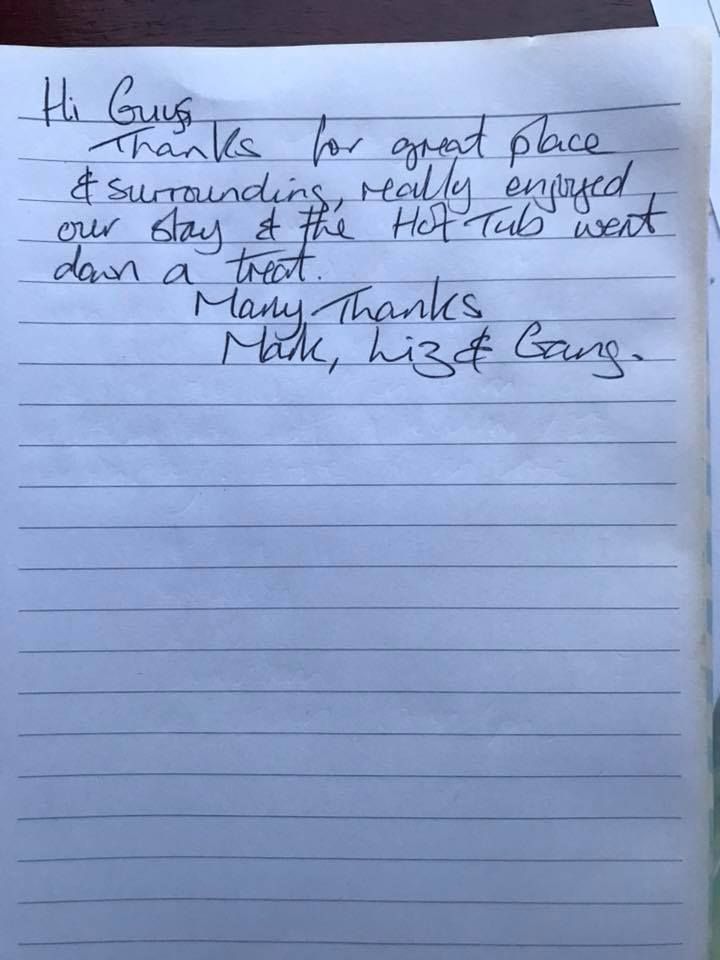 Hi Guys,
Thanks for great place
& surrounding, really enjoyed
our stay & the Hot Tub went
down a treat.
Many Thanks
Mark, Liz & Gang.